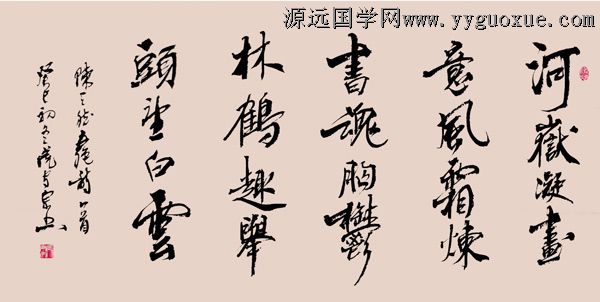 源远国学网 www.yyguoxue.com
河嶽凝畫
意風霜煉
書魂胸鬱
林鶴趣舉
頭望白雲
陳 五絕詩一首
癸巳初冬